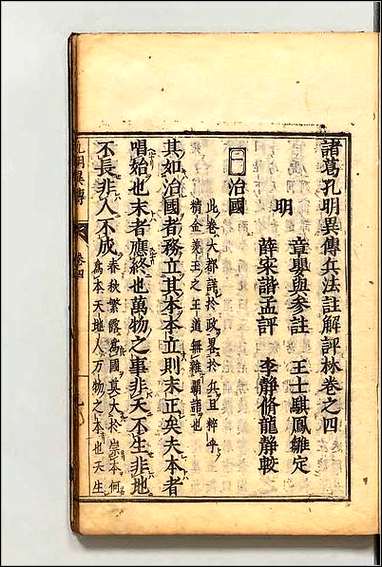 諸葛孔明異傳兵法註解評林卷之四
章嬰與參註　王士騏鳳雛定
明
薛寀諧孟評　李靜脩龍靜較
㊀治國
此卷大都詳於政畧於兵且粹乎
精金美玉之王道無雜霸語也
其如治國者務立其本本立則末正矣夫本者
唱始也末者應終也萬物之事非天不生非地
不長非人不成
春秋繁露爲國莫大於崇本何
爲本天地人万物之本也天生
孔明異傳
卷四